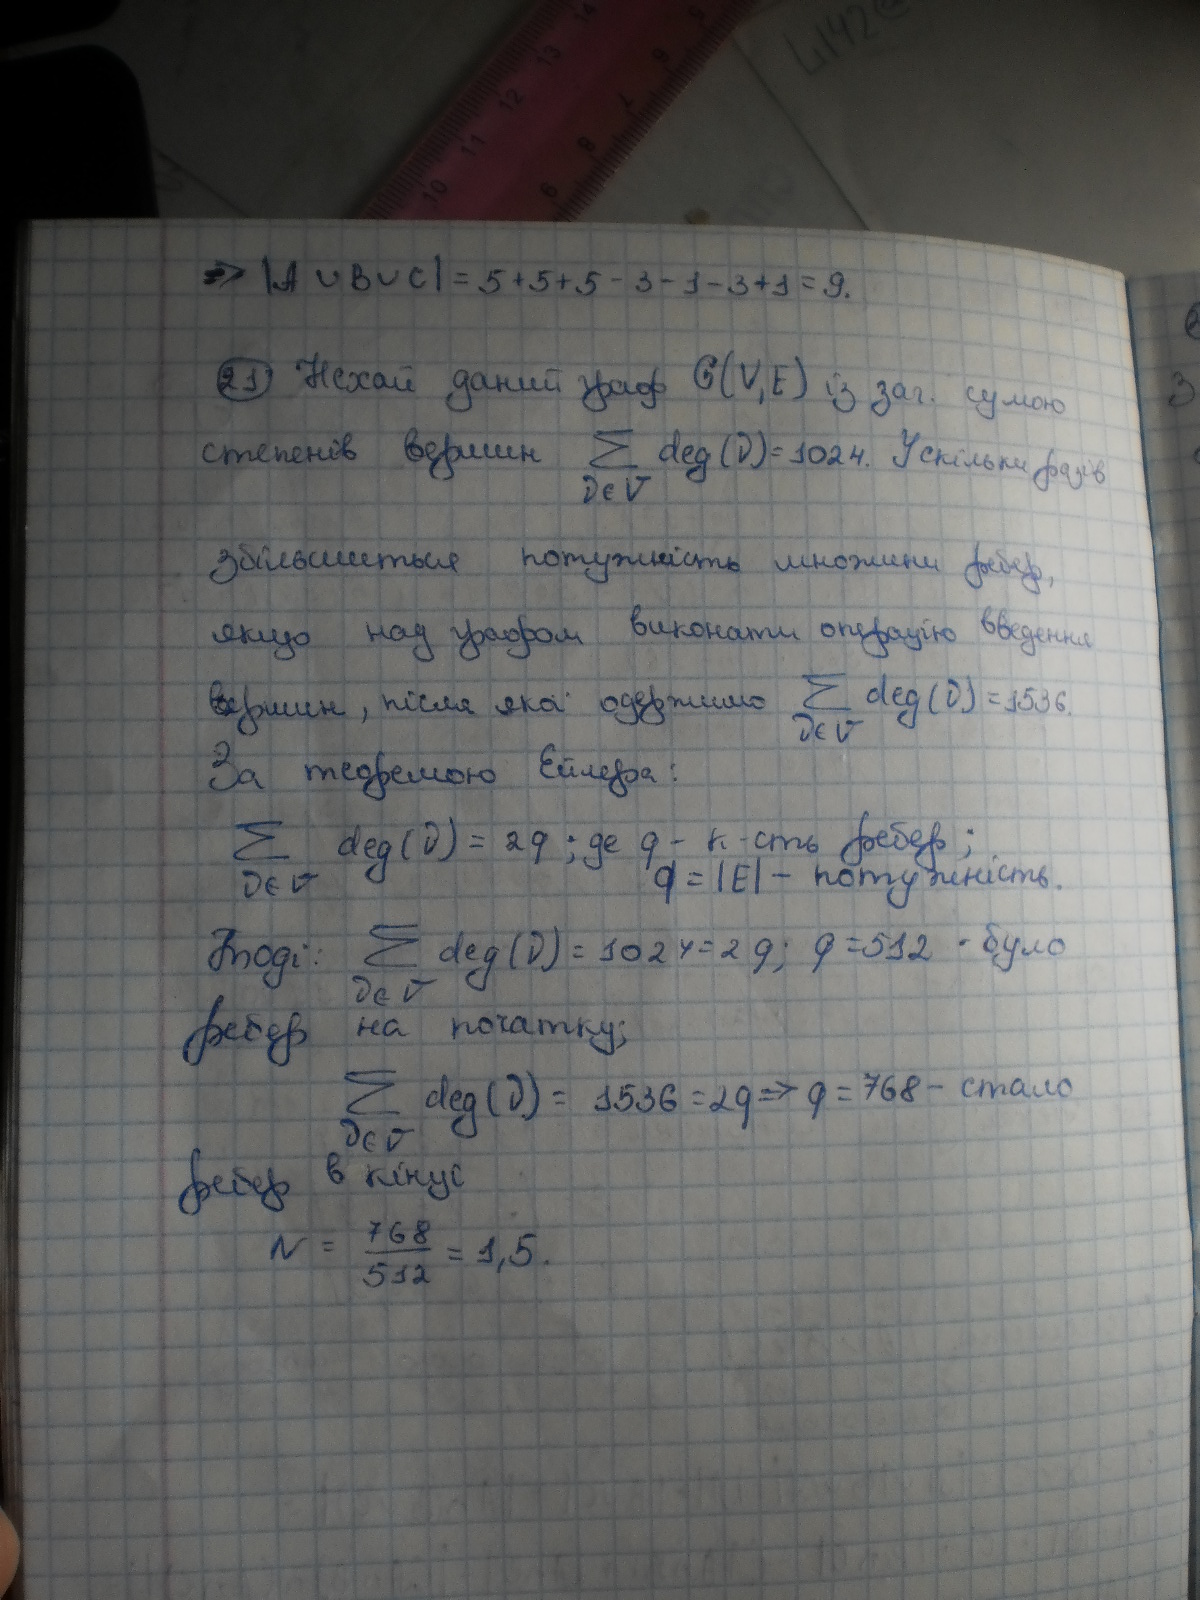 => |A ∪ B ∪ C| = 5+5+5-3-1-3+1=9.
21) Нехай даний граф G(V,E) із заг. сумою
степенів вершин ∑ deg(V)=1024. У скільки разів
V∈V
збільшиться потужність множини ребер,
якщо над графом виконати операцію введення
вершин, після якої одержимо ∑ deg(V)=1536.
V∈V
За теоремою Ейлера:
∑ deg(V) = 2q ; де q - к-сть ребер ;
V∈V q = |E| - потужність.
Тоді: ∑ deg(V) = 1024=2q; q=512 - було
V∈V
ребер на початку;
∑ deg(V) = 1536=2q => q=768 - стало
V∈V
ребер в кінці
N = 768/512 = 1,5.
10 11 12 13 14
6 7 8 9